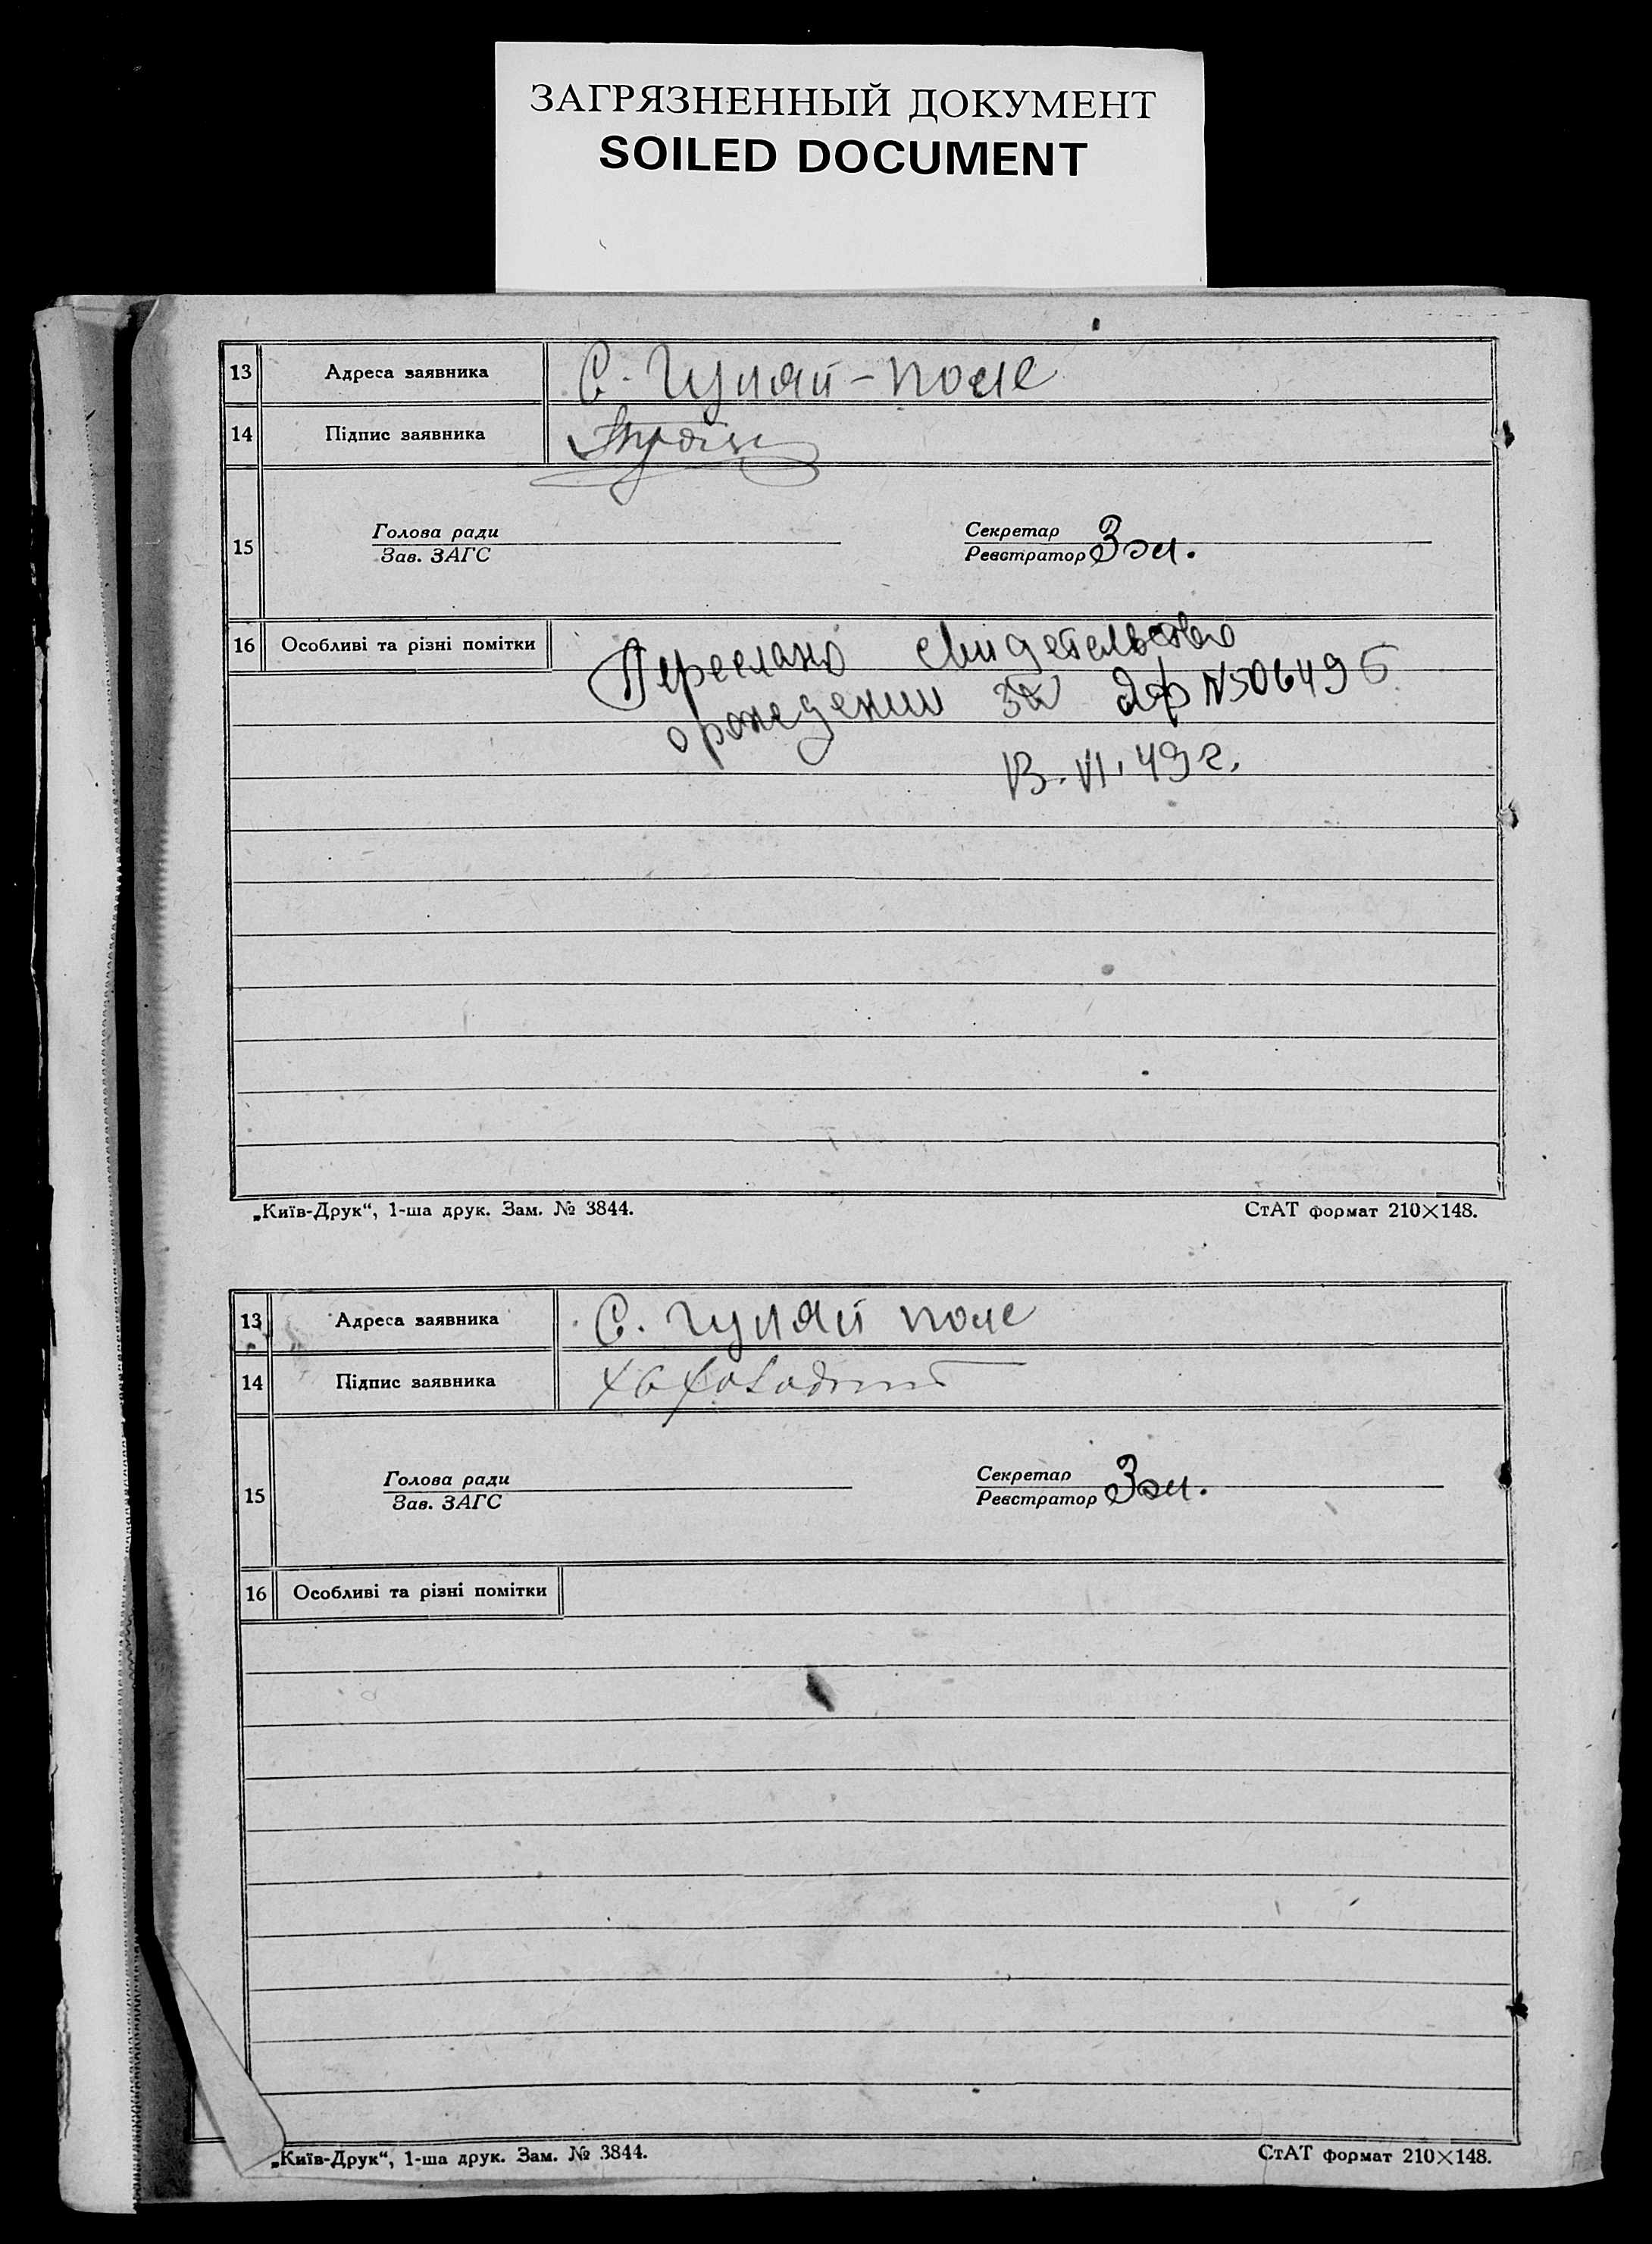 ЗАГРЯЗНЕННЫЙ ДОКУМЕНТ
SOILED DOCUMENT
13 Адреса заявника С. Гуляй-поле
14 Підпис заявника
Голова ради Секретар
15 Зав. ЗАГС Реєстратор
16 Особливі та різні помітки Переслано свидетельство
о рождении за № 506495
13.VI.49 г.
„Київ-Друк“, 1-ша друк. Зам. № 3844. СтАТ формат 210×148.
13 Адреса заявника С. Гуляй поле
14 Підпис заявника
Голова ради Секретар
15 Зав. ЗАГС Реєстратор
16 Особливі та різні помітки
„Київ-Друк“, 1-ша друк. Зам. № 3844. СтАТ формат 210×148.